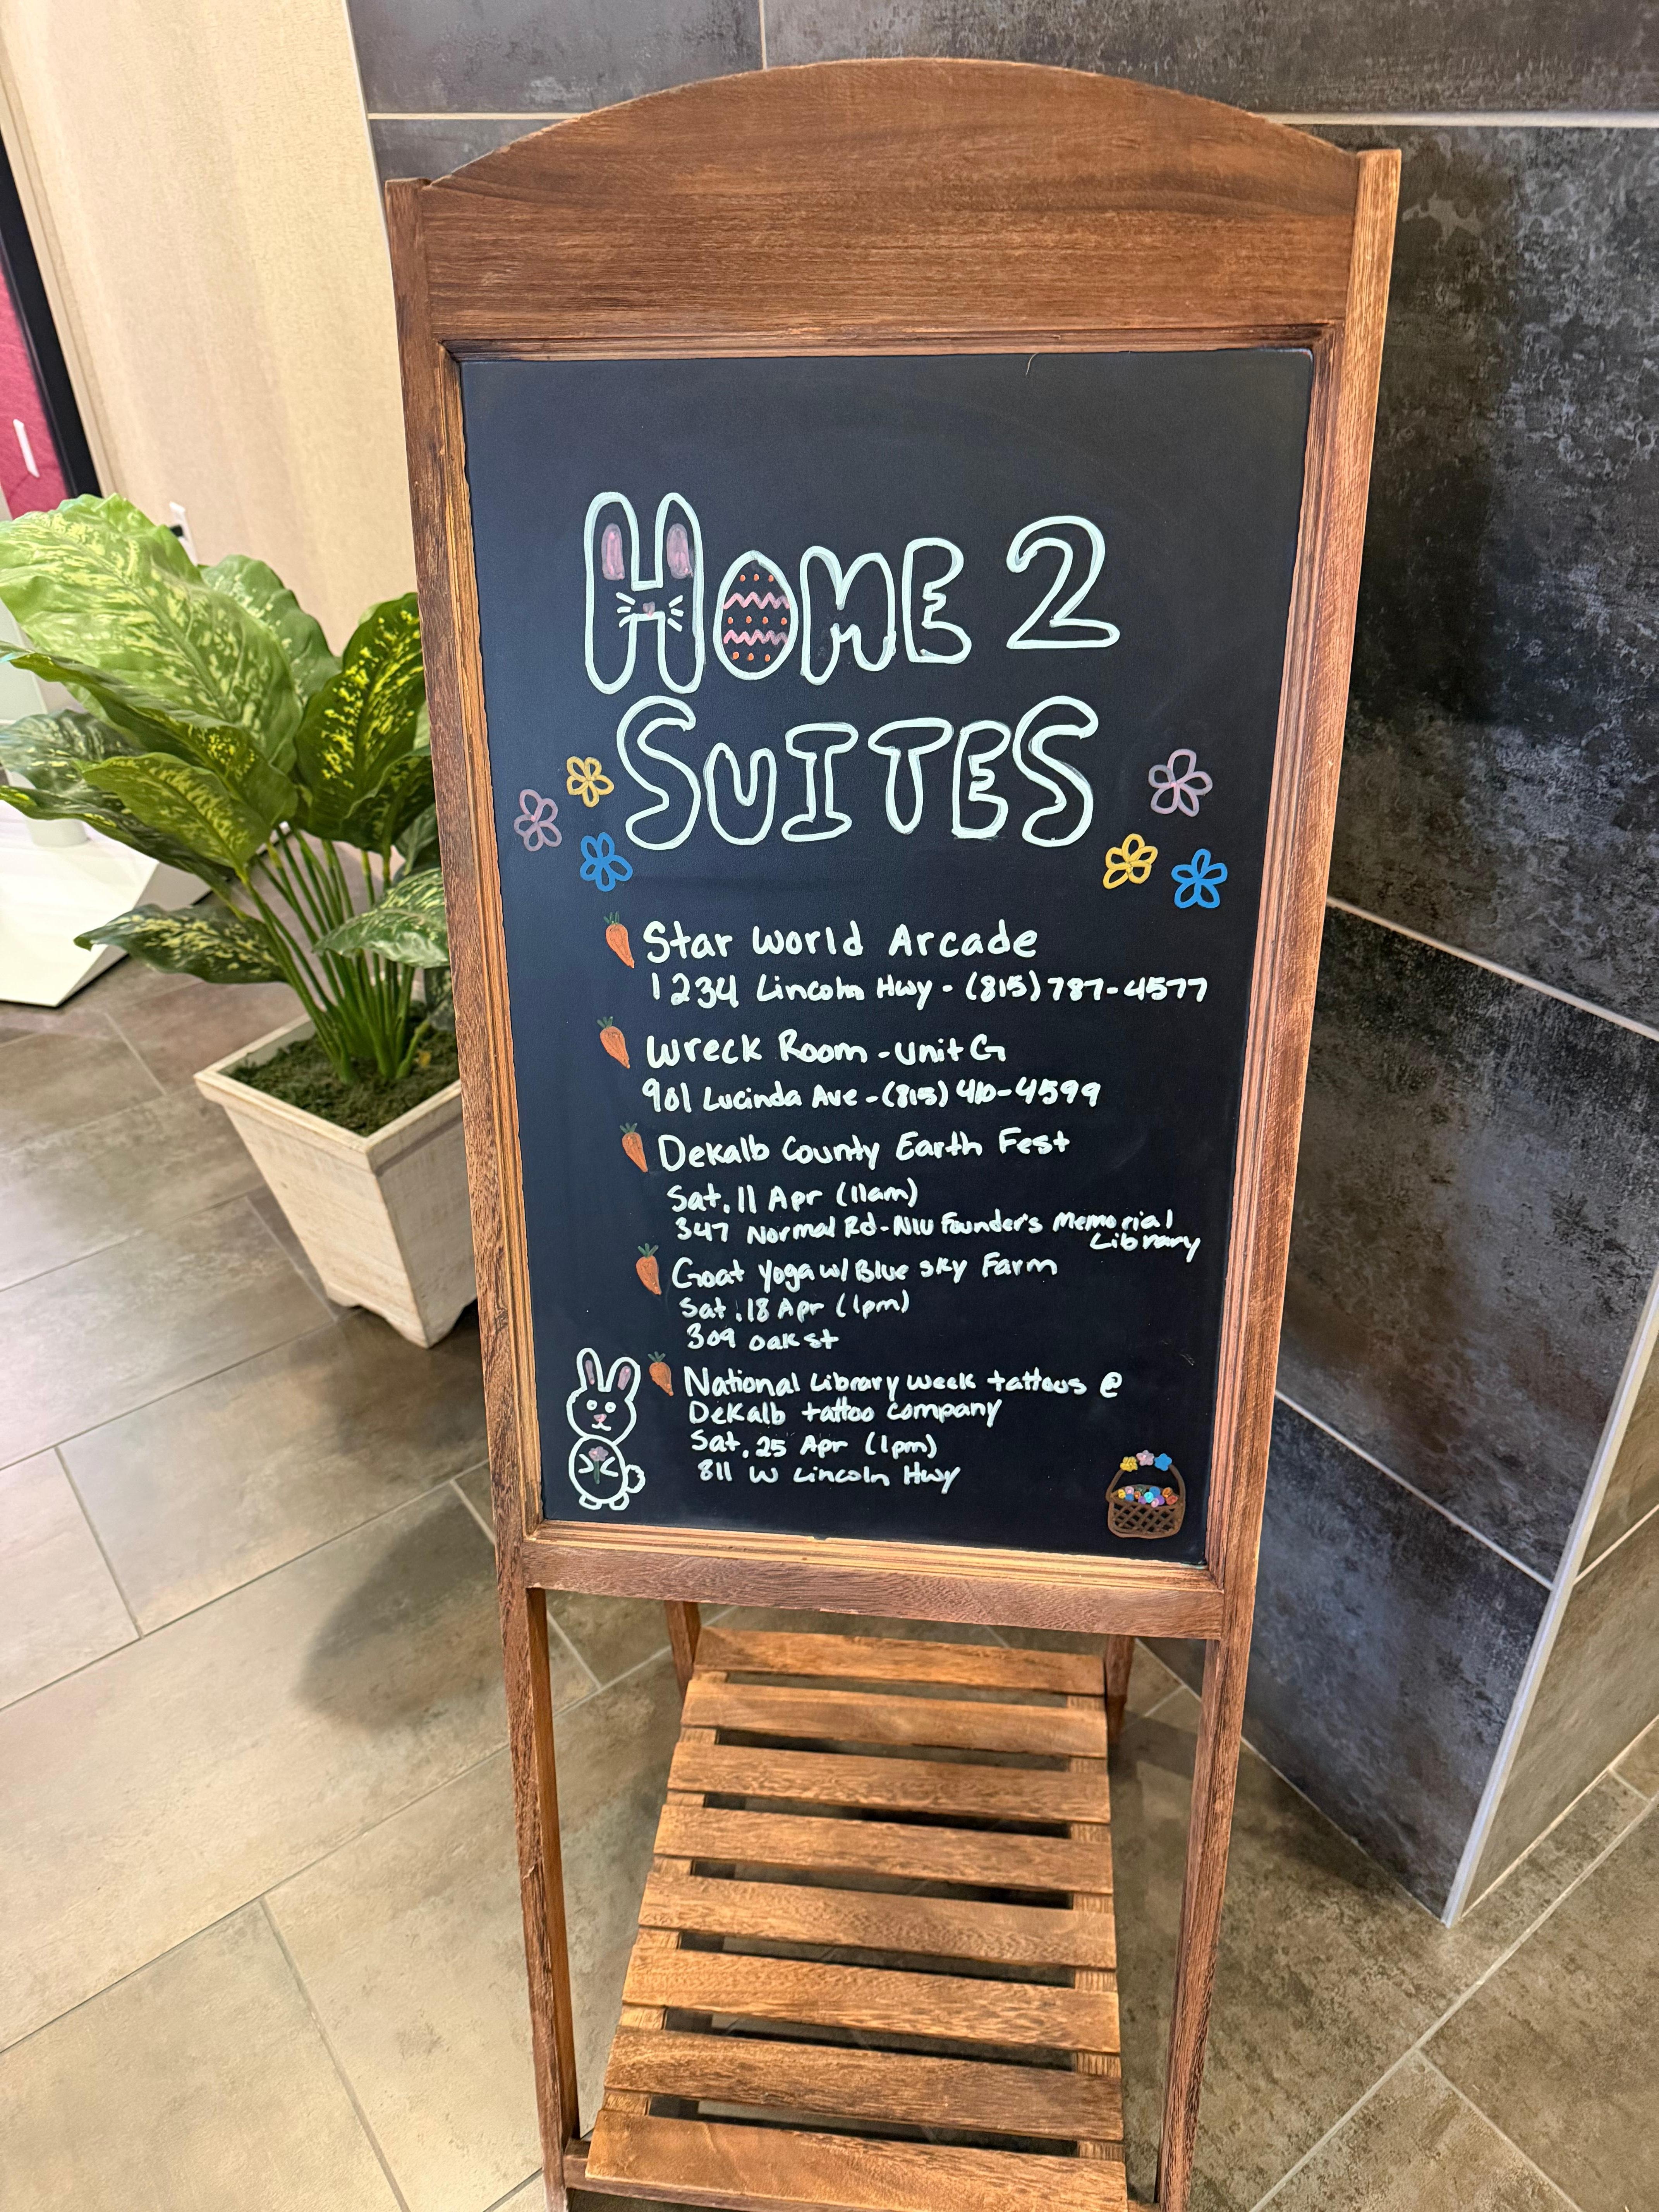 HOME 2
SUITES
Star World Arcade
1234 Lincoln Hwy - (815) 787-4577
Wreck Room - Unit G
901 Lucinda Ave - (815) 410-4599
DeKalb County Earth Fest
Sat, 11 Apr (11am)
347 Normal Rd - NIU Founder's Memorial
Library
Goat Yoga w/ Blue Sky Farm
Sat, 18 Apr (1pm)
309 Oak St
National Library Week tattoos @
DeKalb tattoo company
Sat, 25 Apr (1pm)
811 W Lincoln Hwy